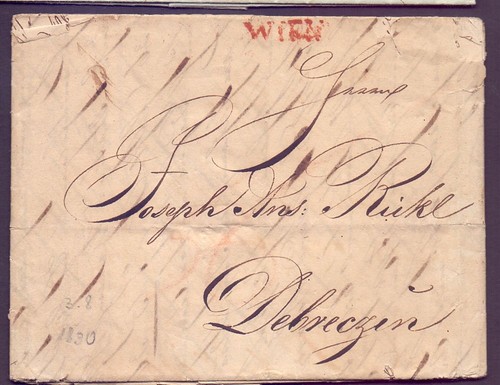 WIEN
Herrn
Joseph Ant: Rickl
Debreczin.
3.8
1830